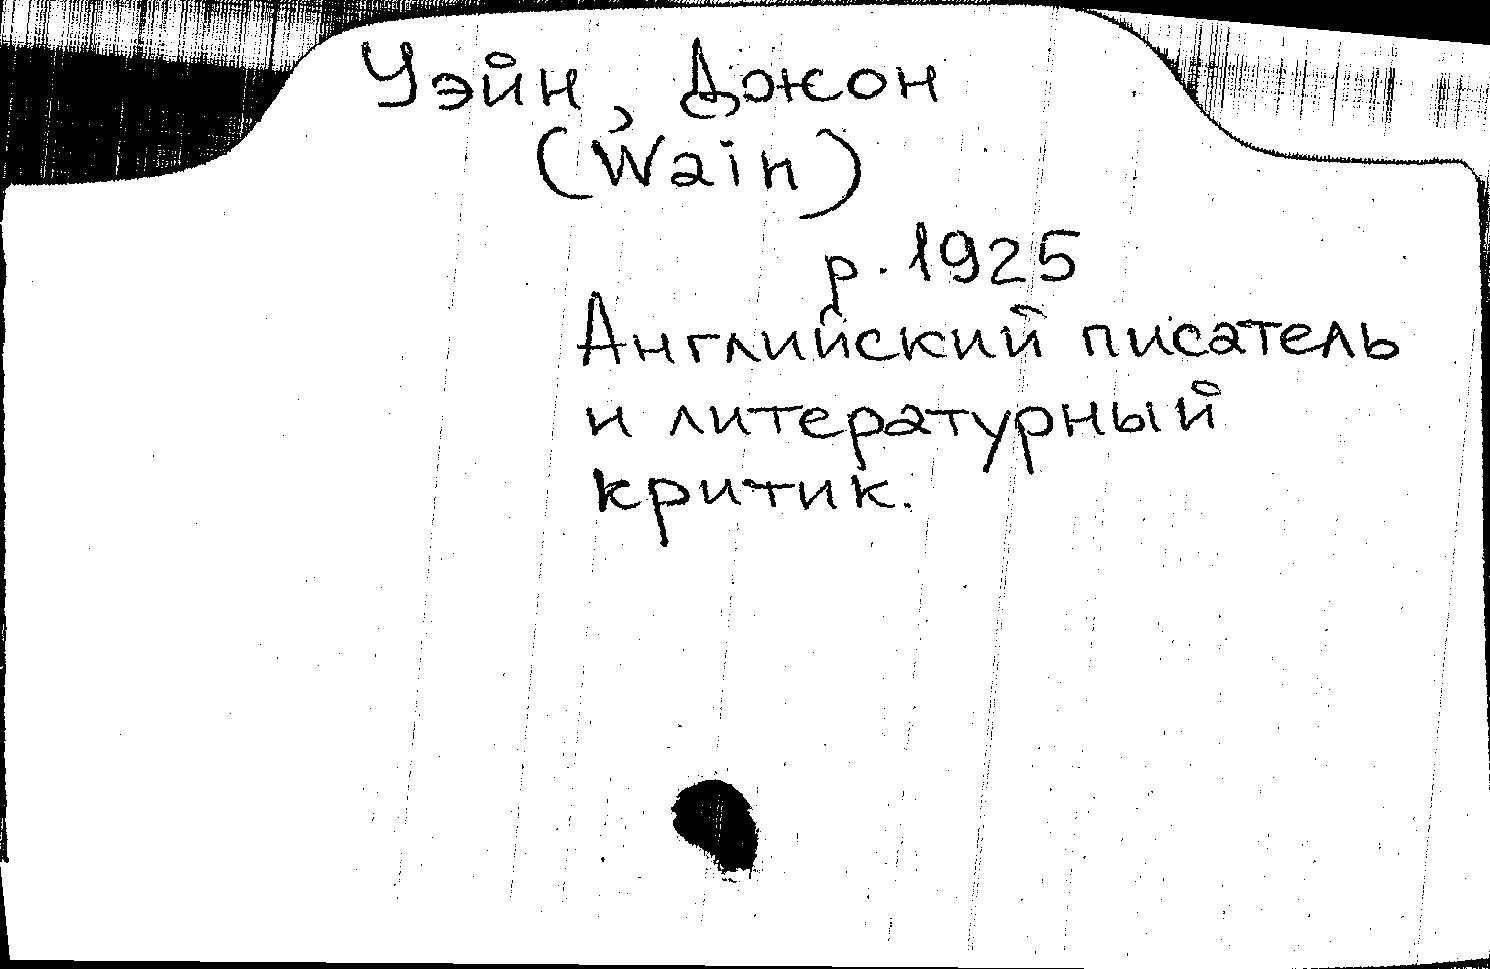 Уэйн, Джон
(Wain)
р. 1925
Английский писатель
и литературный
критик.